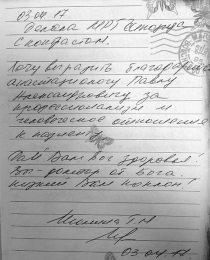 03.04.17
Делала МРТ
с контрастом.
Хочу выразить благодарность
анестезиологу Павлу
Александровичу за
профессионализм и
человеческое отношение
к пациенту
Дай Вам Бог здоровья!
Вы - доктор от Бога.
Низкий Вам поклон!
03.04.17